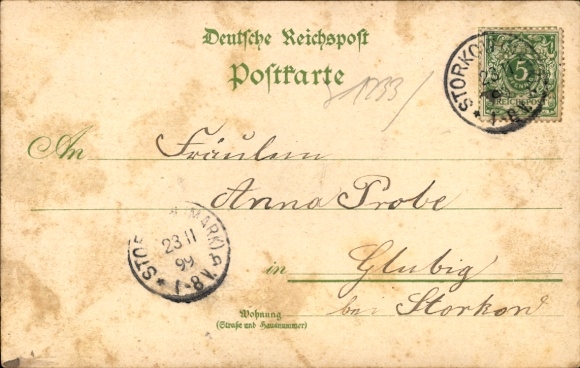 Deutsche Reichspost
Postkarte
1233
5
REICHSPOST
STORKOW
23 11
An Fräulein
Anna Probe
(MARK)
23 11
99
* 1-8V.
in Glubig
bei Storkow
Wohnung
(Straße und Hausnummer)